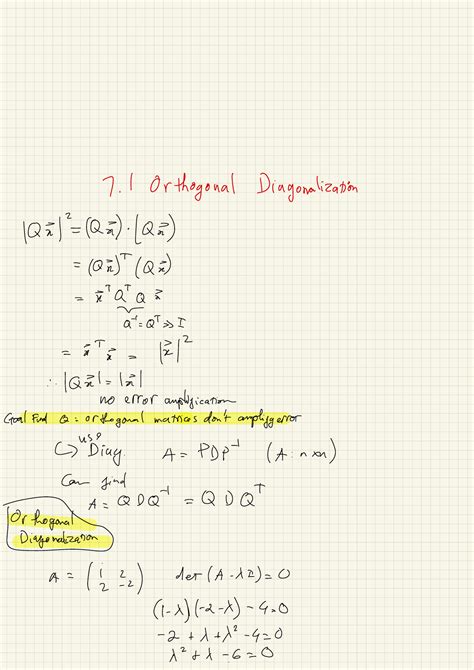 7.1 Orthogonal Diagonalization
|Qx⃗|² = (Qx⃗) · (Qx⃗)
= (Qx⃗)ᵀ (Qx⃗)
= x⃗ᵀ Qᵀ Q x⃗
Q⁻¹ = Qᵀ ⇒ I
= x⃗ᵀ x⃗ = |x⃗|²
∴ |Qx⃗| = |x⃗|
no error amplification
Goal Find Q = orthogonal matrices don't amplify error
↳ use Diag. A = PDP⁻¹ (A: n×n)
Can find
A = QDQ⁻¹ = QDQᵀ
Orthogonal
Diagonalization
A = (1 2
2 -2) det(A-λI) = 0
(1-λ)(-2-λ) - 4 = 0
-2 + λ + λ² - 4 = 0
λ² + λ - 6 = 0